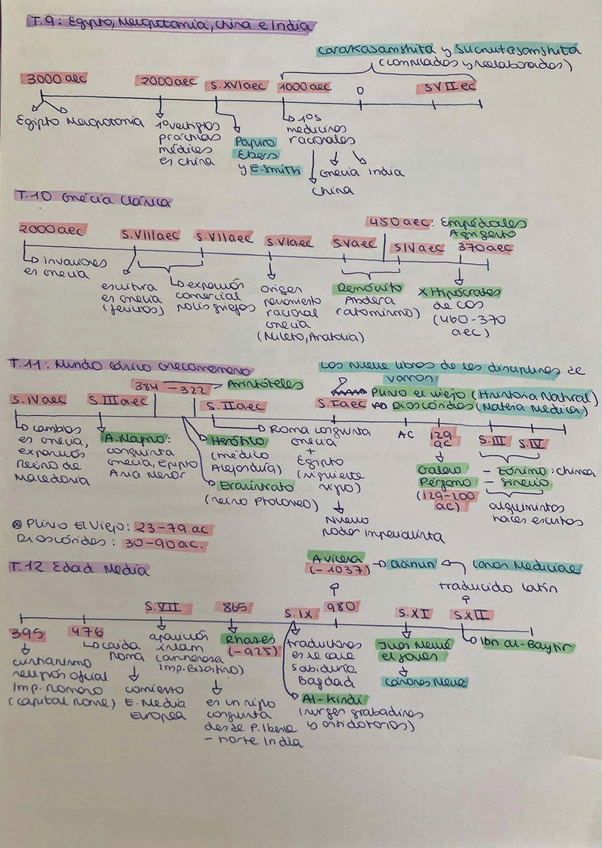 T.9: Egipto, Mesopotamia, China e India
Carakasamshita y Sucrutasamshita
(compilados y reelaborados)
3000 aec 2000 aec S.XVI aec 1000 aec 0 S VII ec
Egipto Mesopotamia
1º vestigios
prácticas
médicas
es china
Papiro
Ebers
y E.Smith
1os
medicinas
racionales
Grecia India
China
T.10 Grecia Clásica
450 aec: Empédocles
Agrigento
2000 aec S.VIII aec S.VII aec S.VI aec S.V aec S IV aec 370 aec
invasiones
es Grecia
escritura
es Grecia
(fenicios)
expansión
comercial
polis griegas
origen
pensamiento
racional
Grecia
(Mileto, Anatolia)
Demócrito
Abdera
(atomismo)
X Hipócrates
de Cos
(460-370
aec)
T.11: Mundo clásico Grecorromano
Los Nueve libros de les disciplines de
Varron
384 — 322 Aristóteles
Plinio el viejo (Historia Natural)
S.IV aec S.III aec S.II aec S.I aec Dioscórides (Materia Medica)
cambios
es Grecia,
expansión
Reino de
Macedonia
A.Magno:
conquista
Grecia, Egipto
Asia Menor
Herófilo
(médico
Alejandría)
Erasístrato
(reino Ptolomeo)
Roma conquista
Grecia
+
Egipto
(siguiente
siglo)
Nuevo
poder imperialista
AC 129
ac
S.III S.IV
Galeno
Pérgamo
(129-200
ac)
- Zósimo: chimea
- Sinesio
alquimistas
haces escritos
Plinio El Viejo: 23-79 ac
Dioscórides: 30-90 ac.
T.12 Edad Media
Avicena
(-1037) Qanun Canon Medicinae
traducido latín
S.VII 865 S.IX 980 S.XI S XII
395 476
cristianismo
religión oficial
Imp. Romano
(capital Rome)
caída
Roma
aparición
islam
(amenaza
Imp. Bizantino)
comienzo
E. Media
Europea
Rhases
(-925)
es un siglo
conquista
desde P. Ibera
- norte India
traductores
es la casa
sabiduría
Bagdad
Al-Kindi
y antidotarios)
Juan Mesué
el joven
Canones Mesue
Ibn al-Baytar